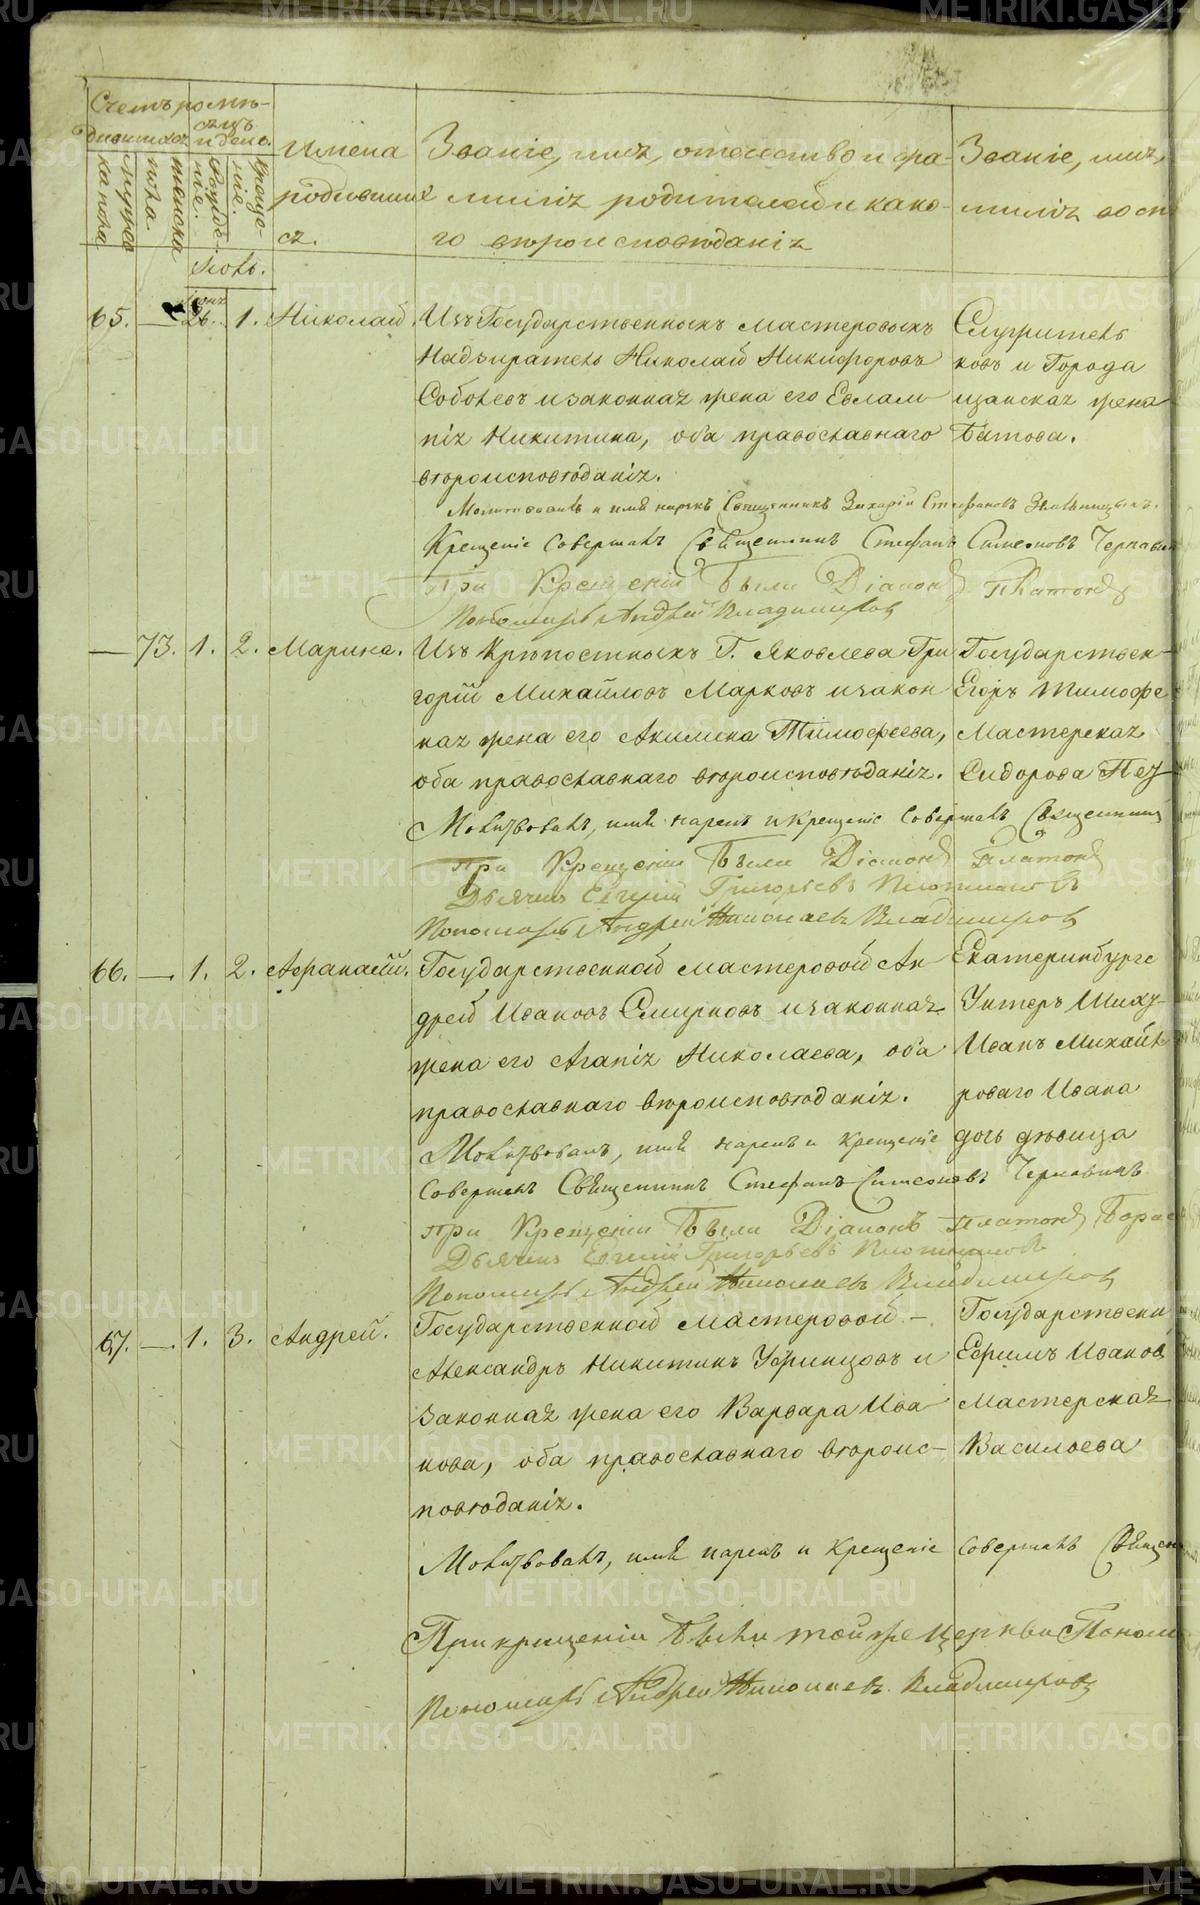 Счетъ родив-
мѣсяцъ
и день.
мужеска
пола
женска
пола
Рожде-
ніе.
Креще-
ніе.
Имена
родивших
ся.
Званіе, имя, отечество и фа-
милія родителей и како-
го вѣроисповѣданія
Званіе, имя,
милія восп
Іюль.
65. — 26. 1. Николай.
Изъ Государственныхъ мастеровыхъ
Надзиратель Николай Никифоровъ
Соболевъ и законная жена его Евлам-
пія Никитина, оба православнаго
вѣроисповѣданія.
Служитель
ковъ и Города
щанская жена
Батова.
Молитвовалъ и имя нарекъ Священникъ Захарій Стефановъ
Крещеніе совершалъ Священникъ Стефанъ Симеоновъ Чернавин
При Крещеніи были Діаконъ Платонъ
Пономарь Андрей Владимиров
— 73. 1. 2. Марина.
Изъ Крѣпостныхъ Г. Яковлева Гри
горій Михайловъ Марковъ и закон
ная жена его Акилина Тимофеева,
оба православнаго вѣроисповѣданія.
Государствен-
Егоръ Тимофе
Мастерская
Сидорова Пез
Молитвовалъ, имя нарекъ и крещеніе совершалъ Священник
При Крещеніи были Діаконъ Платонъ
Дьячекъ Евгений Григорьевъ Плотниковъ
Пономарь Андрей Николаевъ Владимиров
66. — 1. 2. Афанасій.
Государственной мастеровой Ан
дрей Ивановъ Смирновъ и законная
жена его Агапія Николаева, оба
православнаго вѣроисповѣданія.
Екатеринбургс
Унтеръ Шиху-
Иванъ Михайл
роваго Ивана
дочь дѣвица
Молитвовалъ, имя нарекъ и крещеніе
совершалъ Священникъ Стефанъ Симеоновъ Чернавинъ
При Крещеніи были Діаконъ Платонъ
Дьячекъ Евгений Григорьевъ Плотниковъ
Пономарь Андрей Николаевъ Владимиров
67. — 1. 3. Андрей.
Государственной Мастеровой —
Александръ Никитинъ Уфинцовъ и
законная жена его Варвара Ива
нова, оба православнаго вѣроис-
повѣданія.
Государственн
Ефимъ Иванов
мастерская
Васильева
Молитвовалъ, имя нарекъ и крещеніе совершалъ Священ
При крещеніи были той же церкви Поном
Пономарь Андрей Николаевъ Владимировъ
METRIKI.GASO-URAL.RU